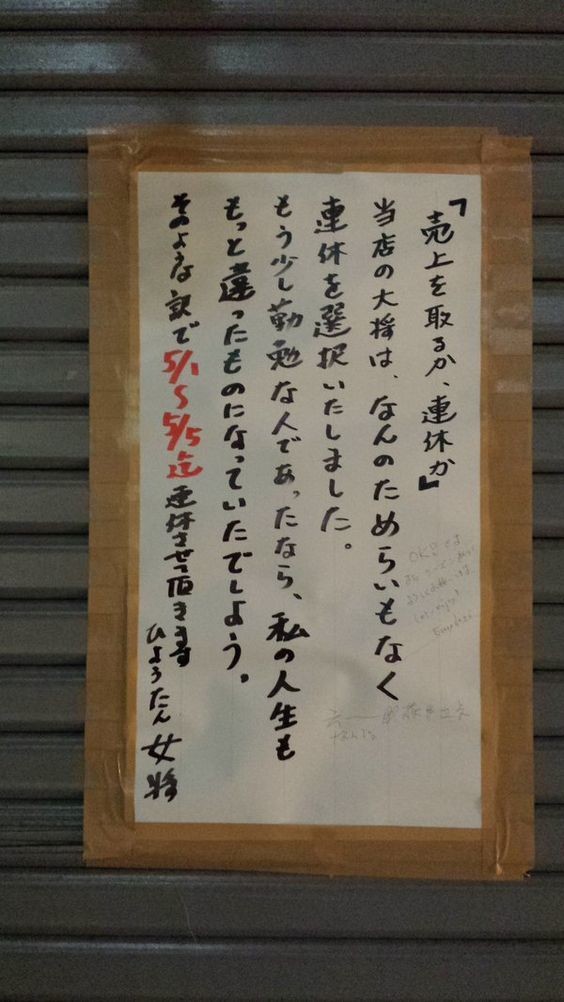 「売上を取るか、連休か」
当店の大将は、なんのためらいもなく
連休を選択いたしました。
もう少し勤勉な人であったなら、私の人生も
もっと違ったものになっていたでしよう。
そのような訳で5/1〜5/5迄連休させて頂きます
ひょうたん女将